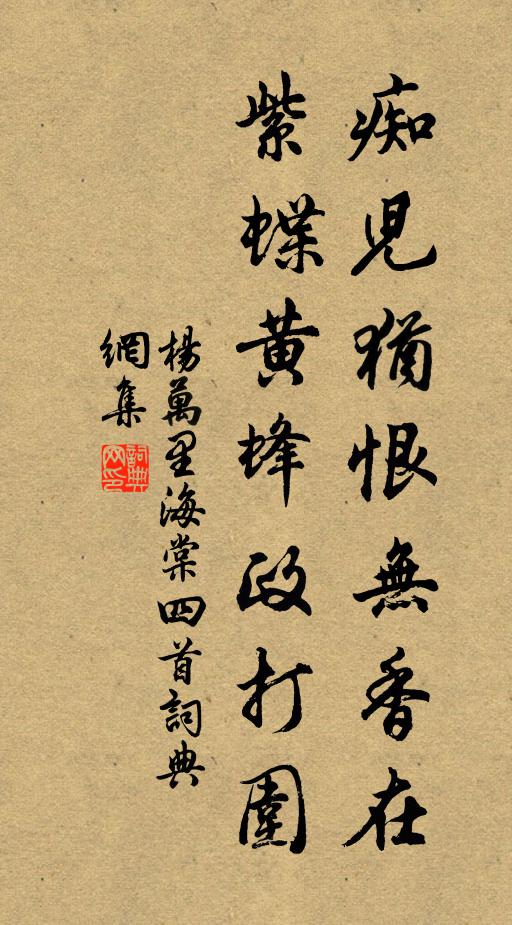 痴児猶恨無香在
紫蝶黄蜂政打圍
楊萬里海棠四首詞典
網集
詞典
网印